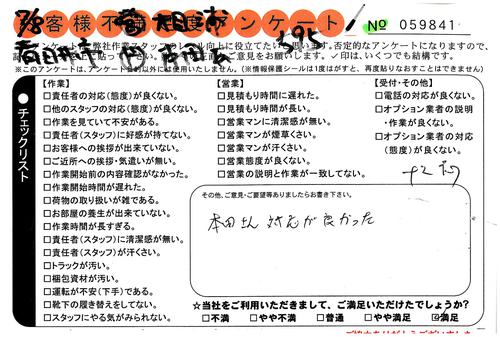 7/8
お客様不満足度アンケート
No 059841
395
(※このアンケートは、アンケート目的以外には使用いたしません。)(※情報保護シールは1度はがすと、再度貼りなおすことはできません。)
●チェックリスト
【作業】
□責任者の対応(態度)が良くない。
□他のスタッフの対応(態度)が良くない。
□作業を見ていて不安がある。
□責任者(スタッフ)に好感が持てない。
□お客様への挨拶が出来ていない。
□ご近所への挨拶・気遣いが無い。
□作業開始前の内容確認がなかった。
□作業開始時間が遅れた。
□荷物の取り扱いが雑である。
□お部屋の養生が出来ていない。
□作業時間が長すぎる。
□責任者(スタッフ)に清潔感が無い。
□責任者(スタッフ)が汗くさい。
□トラックが汚い。
□梱包資材が汚い。
□運転が不安(下手)である。
□靴下の履き替えをしてない。
□スタッフにやる気がみられない。
【営業】
□見積もり時間に遅れた。
□見積もり時間が長い。
□営業マンに清潔感が無い。
□営業マンが煙草くさい。
□営業マンが汗くさい。
□営業態度が良くない。
□営業の説明と作業が一致してない。
【受付・その他】
□電話の対応が良くない。
□オプション業者の説明
・作業が良くない。
□オプション業者の対応
(態度)が良くない。
その他、ご意見・ご要望等ありましたらお書き下さい。
本田さん 対応が良かった
☆当社をご利用いただきまして、ご満足いただけたでしょうか?
□不満 □やや不満 □普通 □やや満足 ☑満足